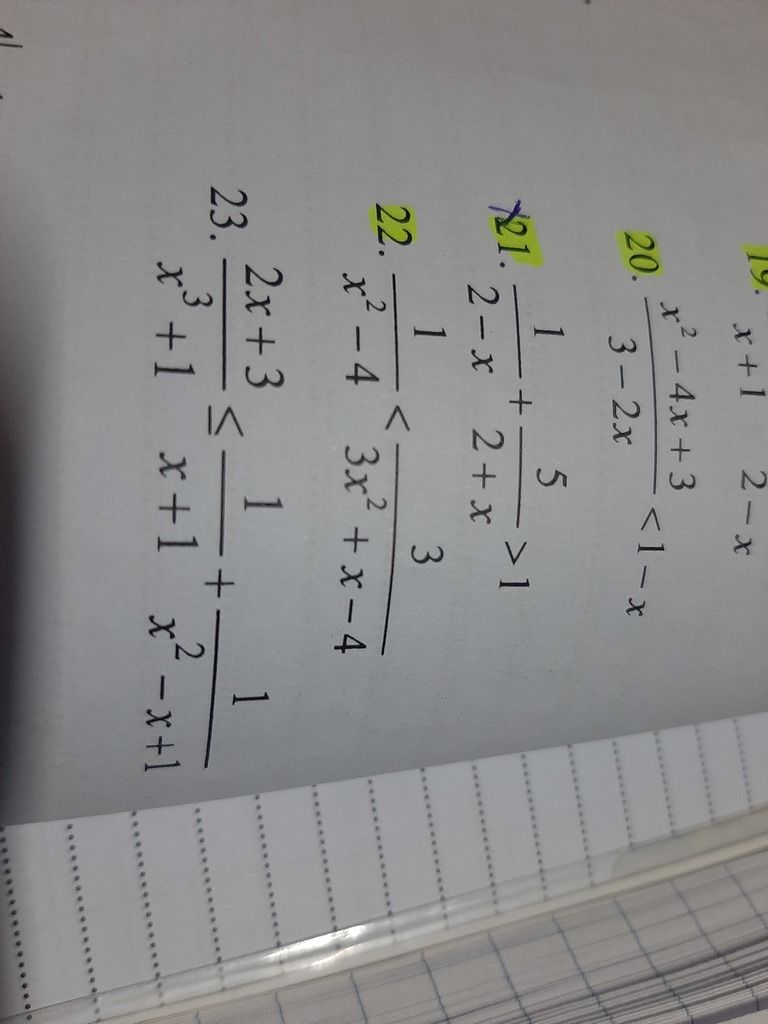 19.
x + 1   2 − x
20. \frac{x^2 − 4x + 3}{3 − 2x} < 1 − x
21. \frac{1}{2 − x} + \frac{5}{2 + x} > 1
22. \frac{1}{x^2 − 4} < \frac{3}{3x^2 + x − 4}
23. \frac{2x + 3}{x^3 + 1} ≤ \frac{1}{x + 1} + \frac{1}{x^2 − x + 1}